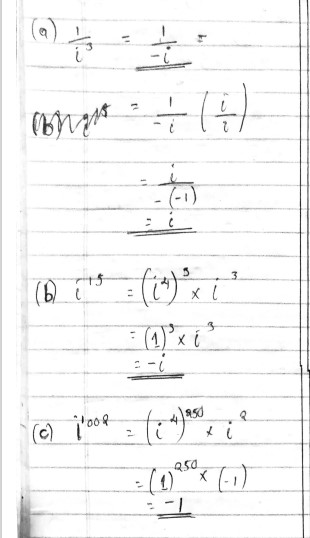 (a) 1/i³ = 1/-i =
= 1/-i (i/i)
= i/-(-1)
= i
(b) i¹⁵ = (i⁴)³ × i³
= (1)³ × i³
= -i
(c) i¹⁰⁰² = (i⁴)²⁵⁰ × i²
= (1)²⁵⁰ × (-1)
= -1